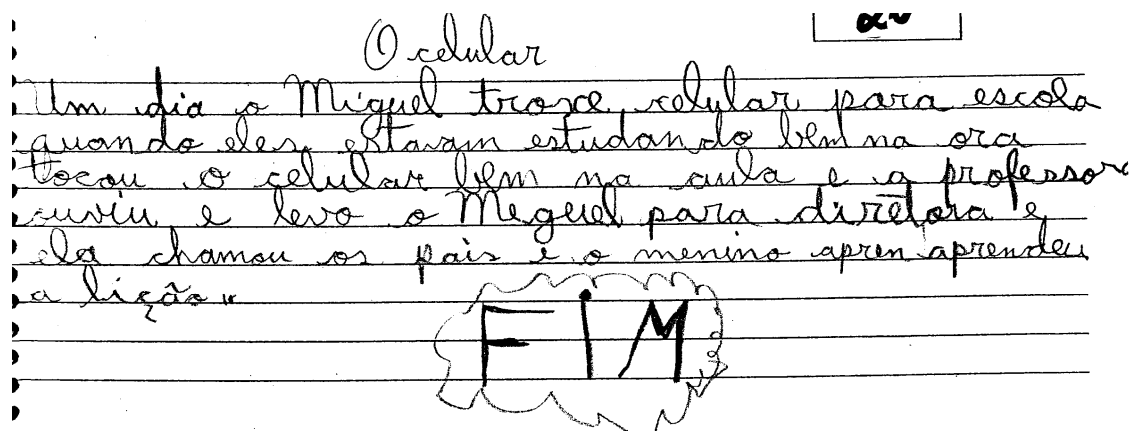 O celular
Um dia o Miguel troxe celular para escola
quando eles estavam estudando bem na ora
tocou o celular bem na aula e a professora
ouviu e levo o Meguel para diretora e
ela chamou os pais e o menino apren aprendeu
a lição"
FIM